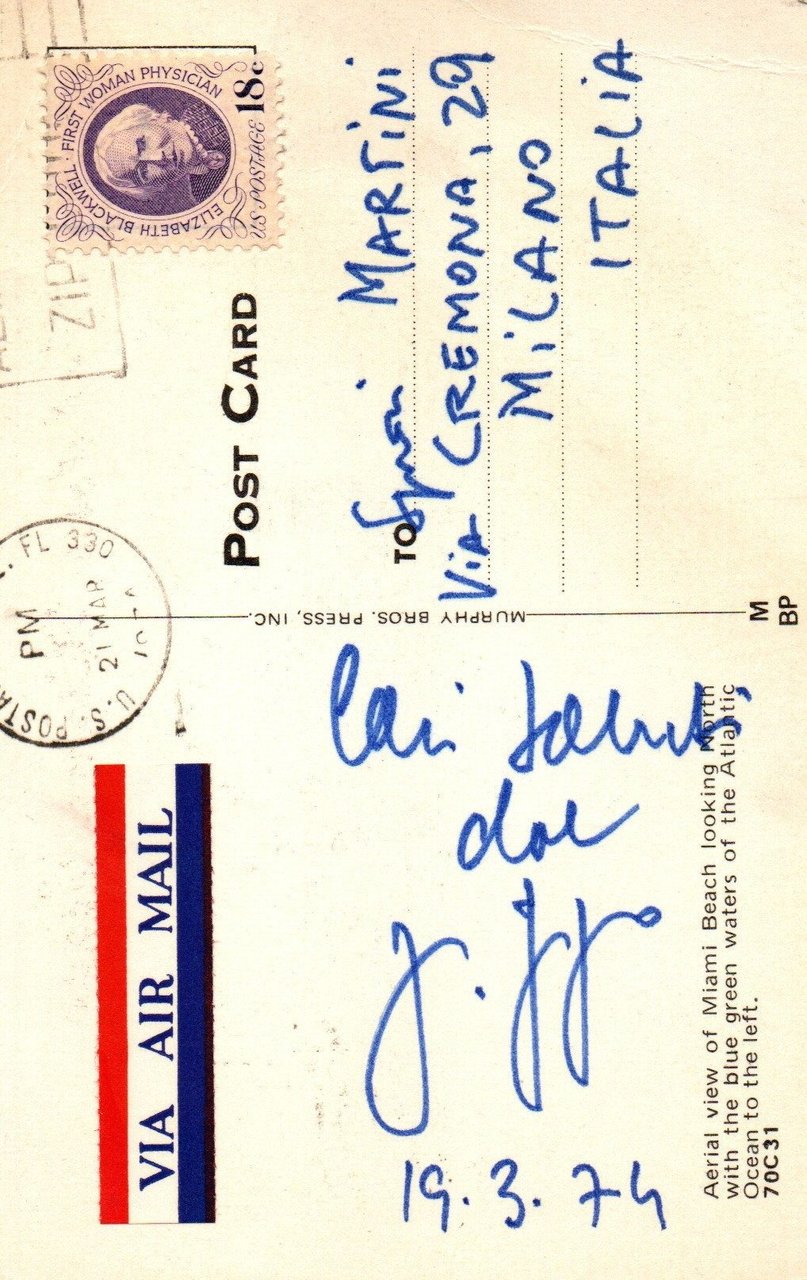 VIA AIR MAIL
U.S. POSTA
FL 330
PM
21 MAR
ZIP
ELIZABETH BLACKWELL · FIRST WOMAN PHYSICIAN
US POSTAGE 18c
POST CARD
Cari saluti
dal
19.3.74
Aerial view of Miami Beach looking North
with the blue green waters of the Atlantic
Ocean to the left.
70C31
MURPHY BROS. PRESS, INC.
M
BP
TO MARTINI
Via CREMONA, 29
MILANO
ITALIA